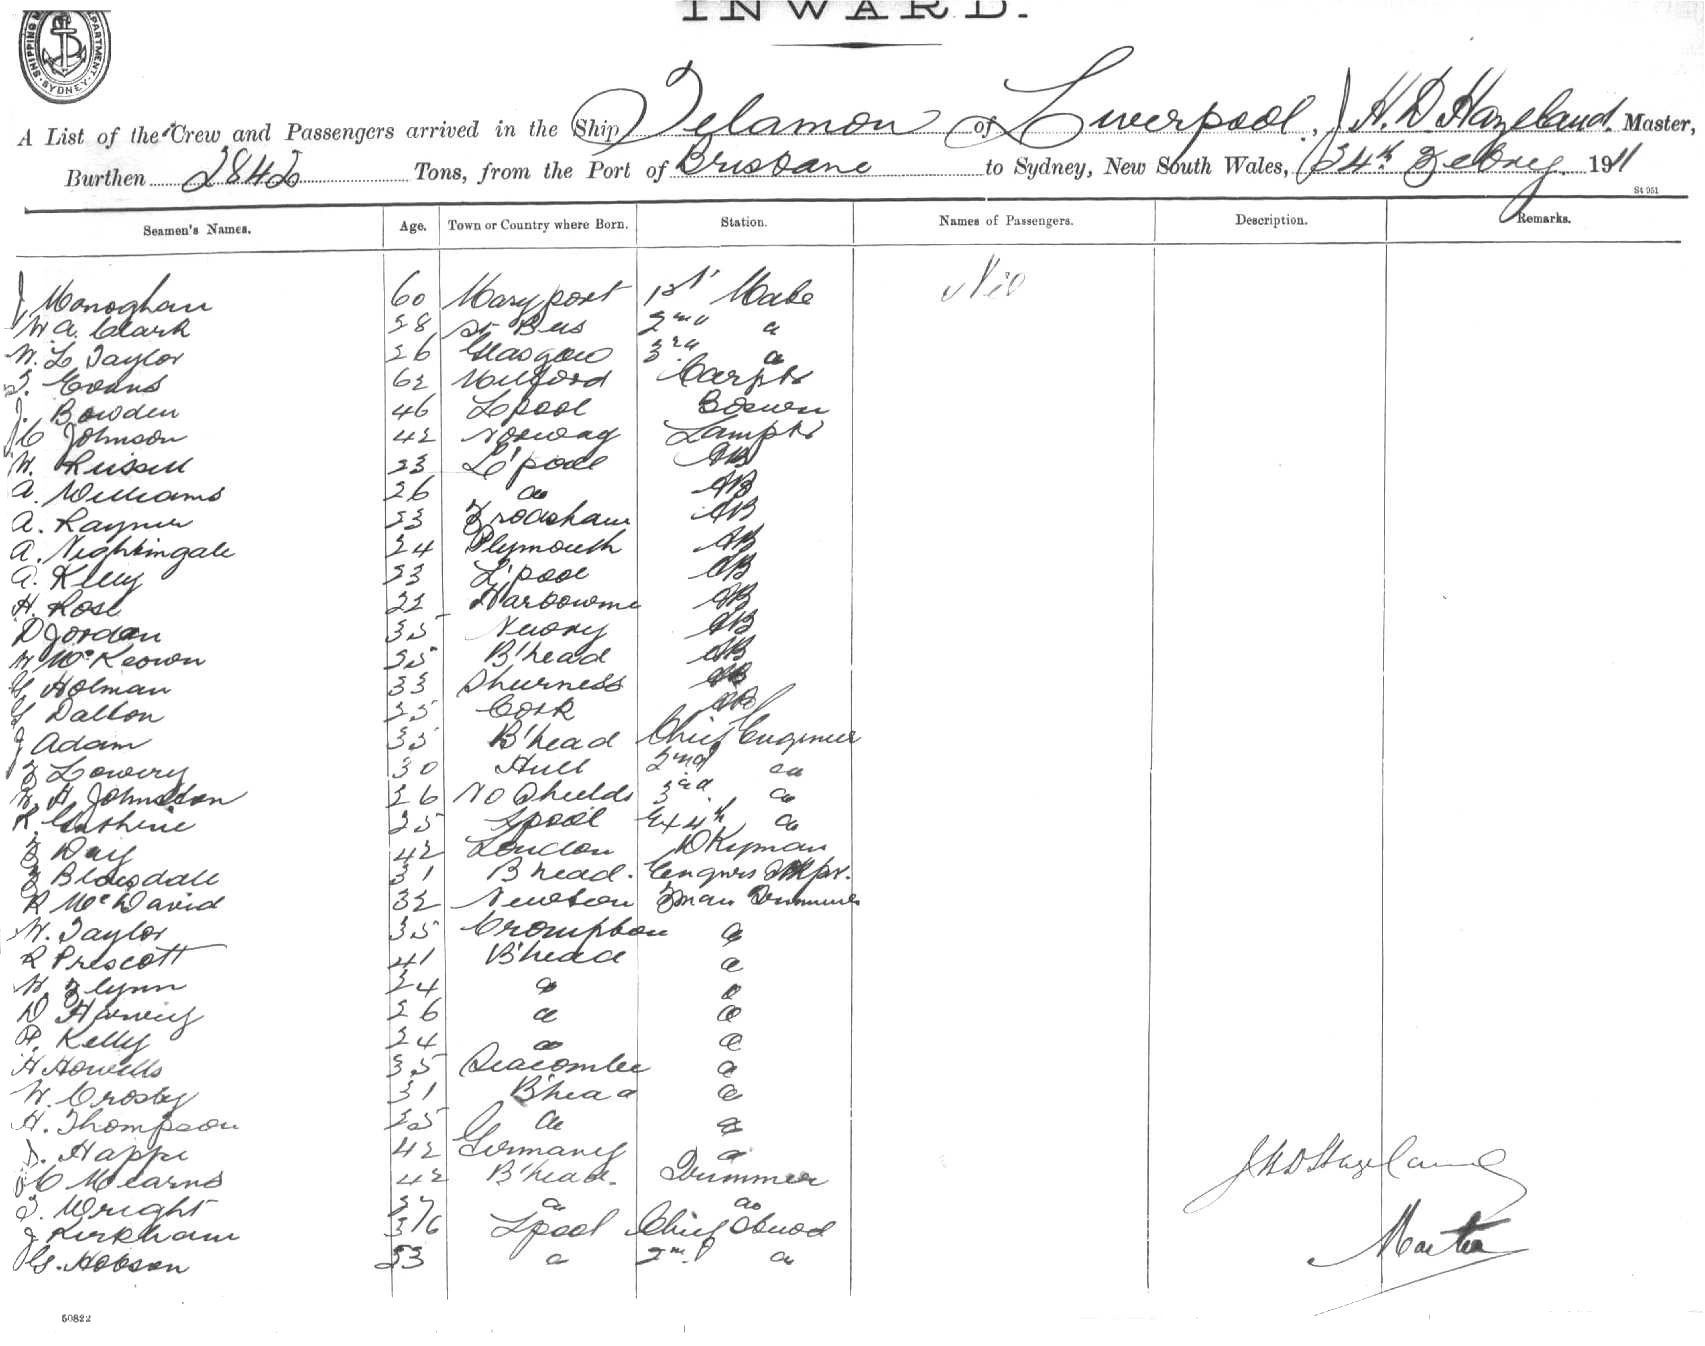 INWARD.
SHIPPING DEPARTMENT SYDNEY
A List of the Crew and Passengers arrived in the Ship Telamon of Liverpool, J. H. D. Hazeland Master,
Burthen 2842 Tons, from the Port of Brisbane to Sydney, New South Wales, 24th Febry 1911
St 951
Seamen's Names. Age. Town or Country where Born. Station. Names of Passengers. Description. Remarks.
J Monoghan 60 Maryport 1st Mate Nil
W. A. Clark 28 St Bees 2nd a
W. L Taylor 26 Glasgow 3rd a
T. Evans 62 Milford Carptr
J. Bowden 46 L'pool Boswn
J C Johnson 42 Norway Lamptr
W. Russell 23 L'pool AB
A. Williams 26 a AB
A. Rayner 23 Frodsham AB
A. Nightingale 24 Plymouth AB
A. Kelly 23 L'pool AB
H. Rose 22 AB
D Jordan 35 Newry AB
W McKeown 25 B'head AB
G Holman 33 Sheerness AB
G Dalton 25 Cork AB
J Adam 35 B'head Chief Engineer
F Lowery 30 Hull 2nd a
W. H. Johnston 26 No Shields 3rd a
R. Guthrie 25 Lpool Ex 4th a
F Day 42 London DKyman
F Bleasdale 31 B'head. Engnrs
R McDavid 32 Newton Fman Trimmer
W. Taylor 35 Crompton a
R Prescott 41 B'head a
W. Flynn 24 a a
D Harvey 26 a a
P. Kelly 24 a a
H Howells 35 Seacombe a
W. Crosby 31 B'head a
H. Thompson 25 a a
J. Happe 42 Germany a
J C Mearns 42 B'head. Trimmer
T. Wright 27 a a
J Kirkham 36 Lpool Chief Stwod
G. Hobson 23 a 2nd a
J H D Hazeland
Master
50822